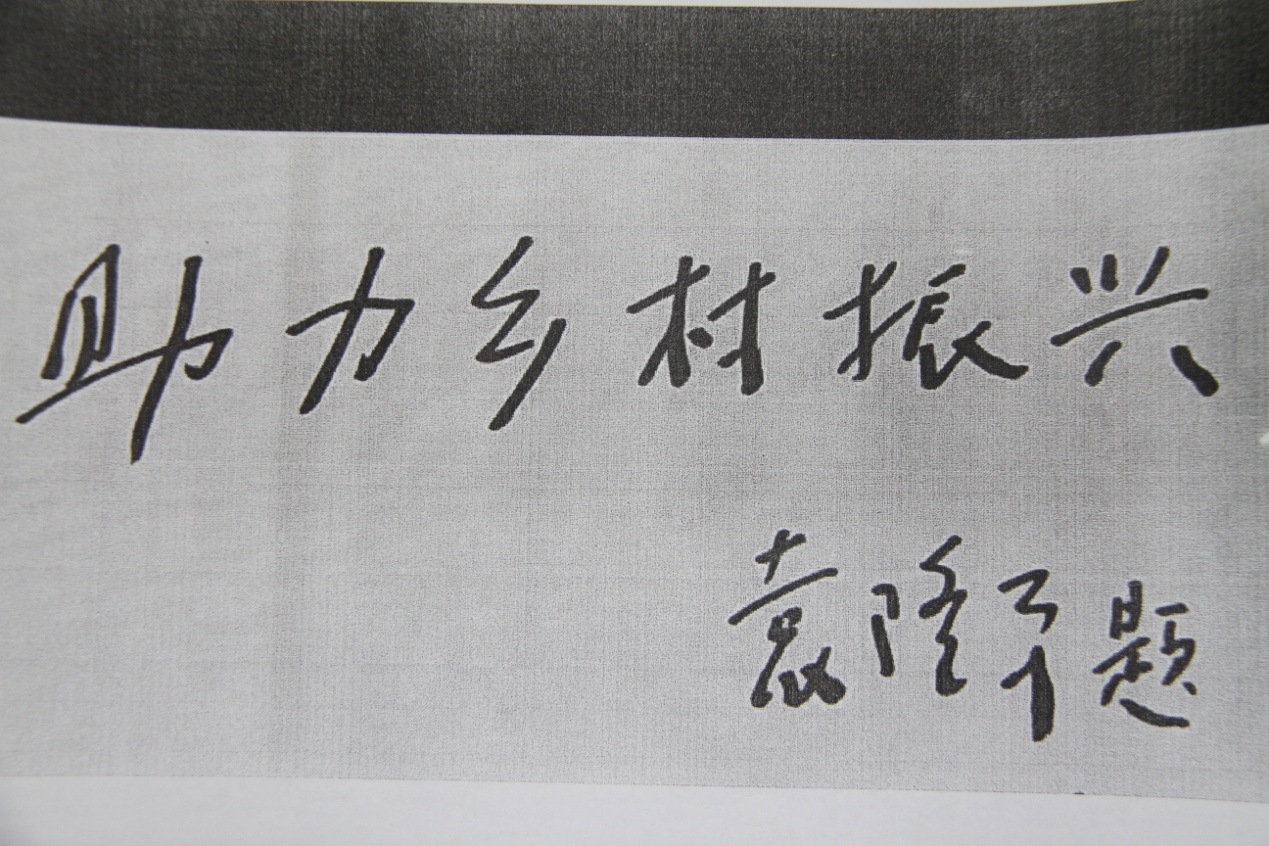 助力乡村振兴
袁隆平题